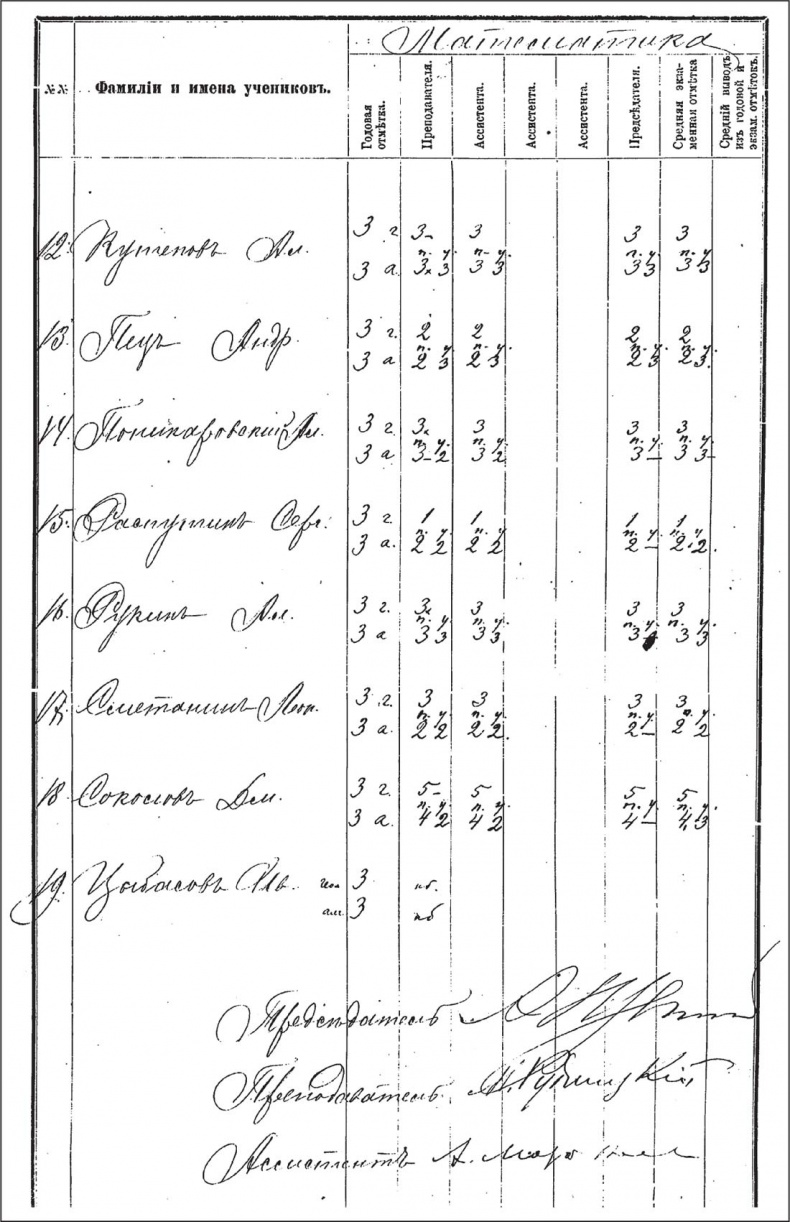 Математика
№№ Фамиліи и имена учениковъ. Годовая отмѣтка. Преподавателя. Ассистента. Ассистента. Ассистента. Предсѣдателя. Средняя экзаменная отмѣтка Средній выводъ изъ годовой и экзам. отмѣтокъ.
3 г. 3- 3 3 3
12. Кутеповъ Ал. п. у п. у п. у п. у
3 а. 3 3 3 3 3 3 3 3
3 г. 2 2 2 2
13. Пецъ Андр. п. у п. у п. у п. у
3 а 2 3 2 3 2 3 2 3.
3 г. 3 3 3 3
14. Поникаровскій Ал. п. у п. у п. у п. у
3 а 3 2 3 2 3 – 3 3
3 г. 1 1 1 1
15. Распутинъ Серг. п. у п. у п. у п. у
3 а. 2 2 2 2 2 – 2 2
3 г. 3 3 3 3
16 Рукинъ Ал. п. у п. у п. у п. у
3 а 3 3 3 3 3 3 3
3 г. 3 3 3 3
17. Сметанинъ Леон. п. у п. у п. у п. у
3 а. 2 2 2 2 2 – 2 2
3 г. 5- 5 5 5
18 Соколовъ Дм. п. у п. у п. у п. у
3 а. 4 2 4 2 4 – 4 3
19. Цыбасовъ Ль. гео 3 нб.
алг 3 нб
Предсѣдатель
Преподаватель
Ассистентъ А.